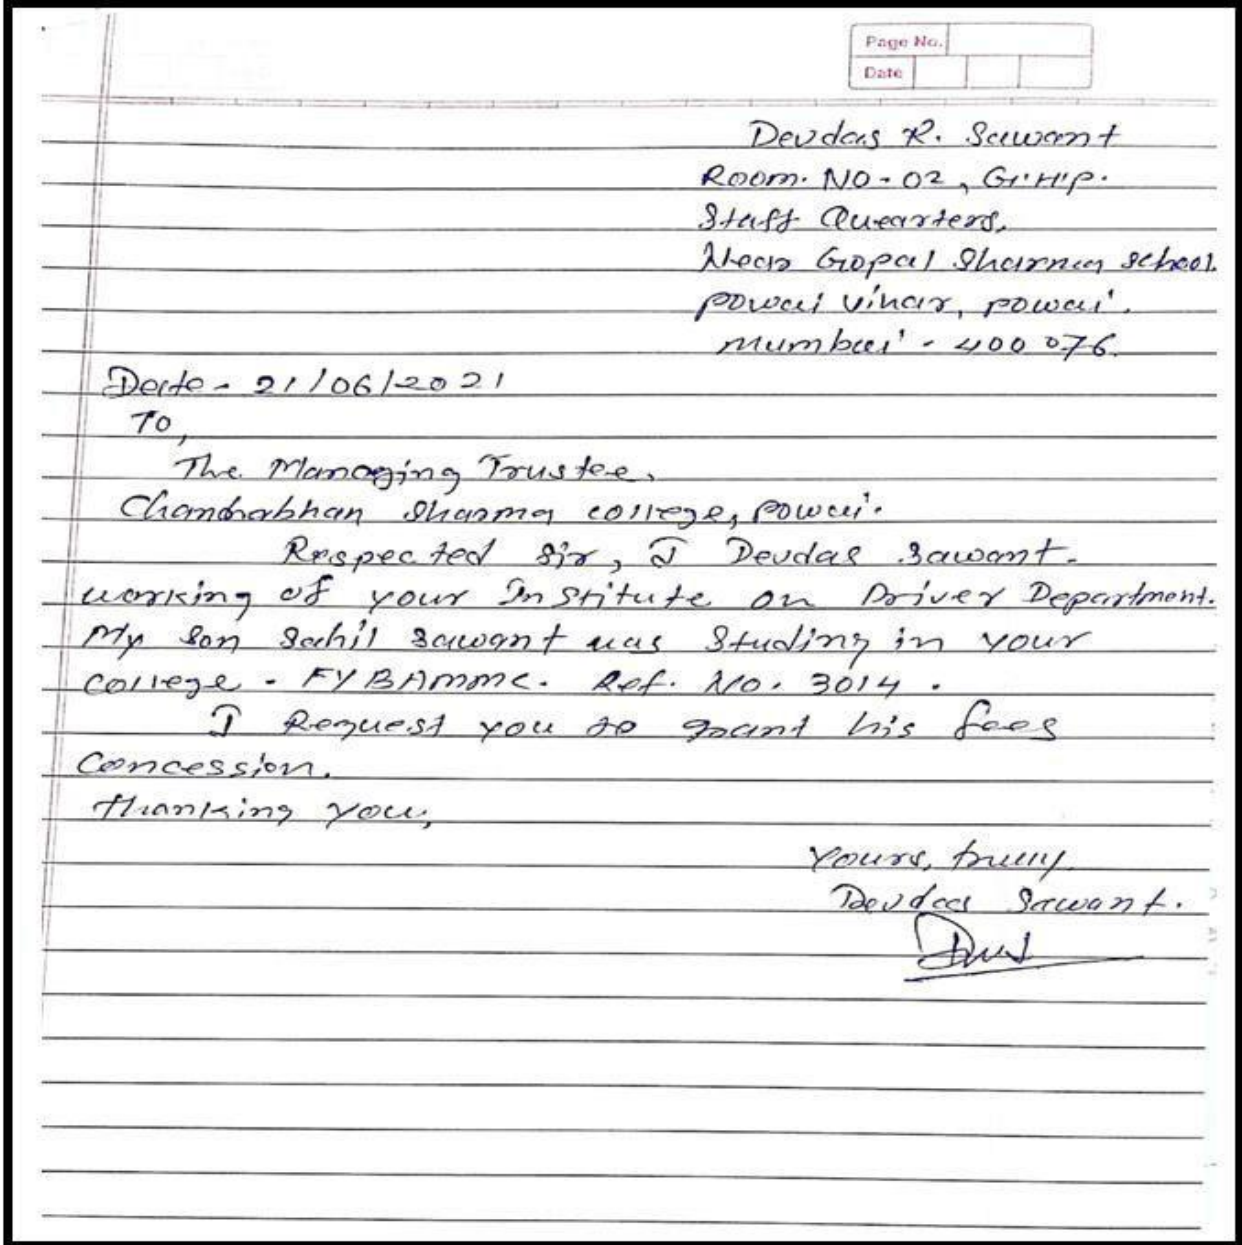 Page No.
Date
Devdas R. Sawant
Room. NO - 02, G.H.P.
Staff Quearters,
Near Gopal Sharma School.
Powai Vihar, Powai.
Mumbai - 400 076.
Date - 21/06/2021
To,
The Managing Trustee,
Chandrabhan Sharma College, Powai.
Respected Sir, I Devdas Sawant.
working of your Institute on Driver Department.
My Son Sahil Sawant was Studing in your
College - FYBAMMC. Ref. No. 3014.
I Request you to grant his fees
Concession.
Thanking you,
Yours, truly
Devdas Sawant.